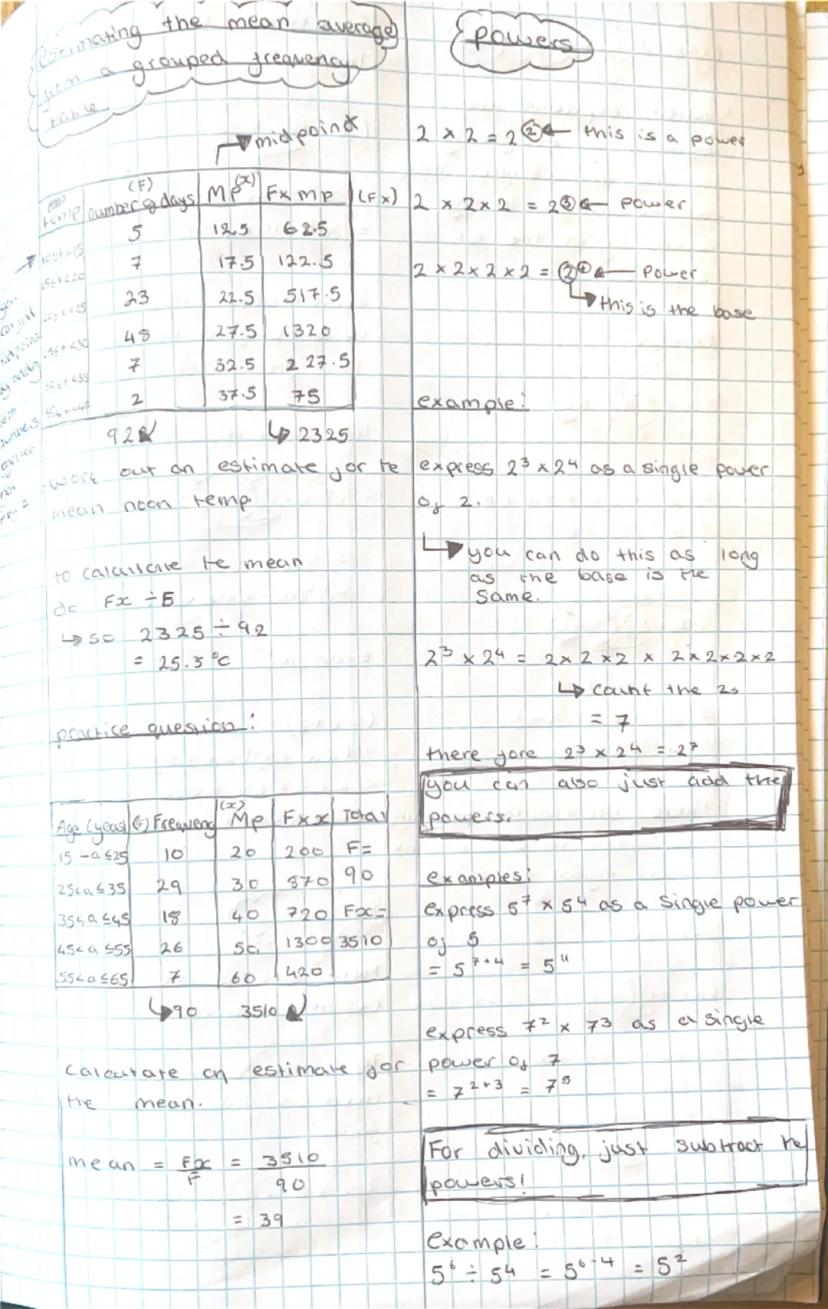 estimating the mean average
from a grouped frequency
table
midpoint
(F) (x)
temp number of days Mp Fx mp (Fx)
5 12.5 62.5
7 17.5 122.5
23 22.5 517.5
48 27.5 1320
7 32.5 227.5
2 37.5 75
92 2325
work out an estimate for te
mean noon temp.
to calculate te mean
do Fx ÷ F
so 2325 ÷ 92
= 25.3°C
practice question:
(x)
Age (years) (F) Frequency Mp Fxx Total
15 -a ≤25 10 20 200 F=
25<a≤35 29 30 870 90
35<a≤45 18 40 720 Fx=
45<a≤55 26 50 1300 3510
55<a≤65 7 60 420
90 3510
Calculate an estimate for
the mean.
mean = Fx/F = 3510/90
= 39
powers
2 × 2 = 2² this is a power
2 × 2 × 2 = 2³ power
2 × 2 × 2 × 2 = 2⁴ power
this is the base
example:
express 2³ × 2⁴ as a single power
of 2.
you can do this as long
as the base is the
same.
2³ × 2⁴ = 2×2×2 × 2×2×2×2
count the 2s
= 7
there fore 2³ × 2⁴ = 2⁷
you can also just add the
powers.
examples:
express 5⁷ × 5⁴ as a single power
of 5
= 5⁷⁺⁴ = 5¹¹
express 7² × 7³ as a single
power of 7
= 7²⁺³ = 7⁵
For dividing, just subtract te
powers!
Example:
5⁶ ÷ 5⁴ = 5⁶⁻⁴ = 5²